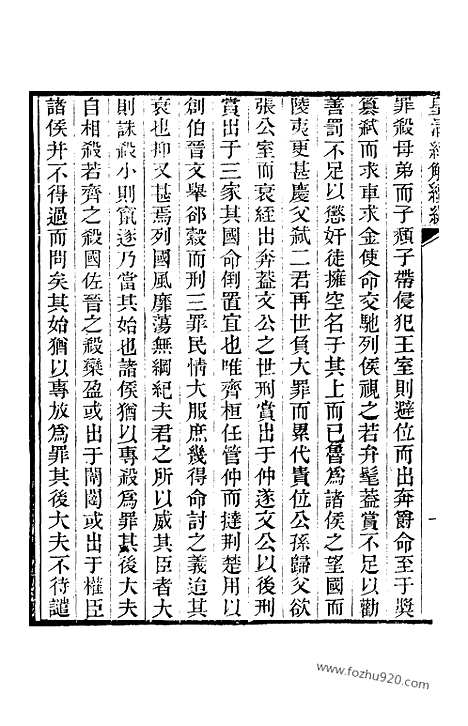 皇清經解續編
罪殺母弟而子頹子帶侵犯王室則避位而出奔爵命至于奬
簒弒而求車求金使命交馳列侯視之若弁髦葢賞不足以勸
善罰不足以懲奸徒擁空名于其上而已魯爲諸侯之望國而
陵夷更甚慶父弒二君再世負大罪而累代貴位公孫歸父欲
張公室而衰絰出奔葢文公之世刑賞出于仲遂文公以後刑
賞出于三家其國命倒置宜也唯齊桓任管仲而撻荆楚用以
創伯晉文舉郤縠而刑三罪民情大服庶幾得命討之義迨其
衰也抑又甚焉列國風靡蕩無綱紀夫君之所以威其臣者大
則誅殺小則竄逐乃當其始也諸侯猶以專殺爲罪其後大夫
自相殺若齊之殺國佐晉之殺欒盈或出于鬩或出于權臣
諸侯并不得過而問矣其始猶以專放爲罪其後大夫不待譴
www.fozhu920.com